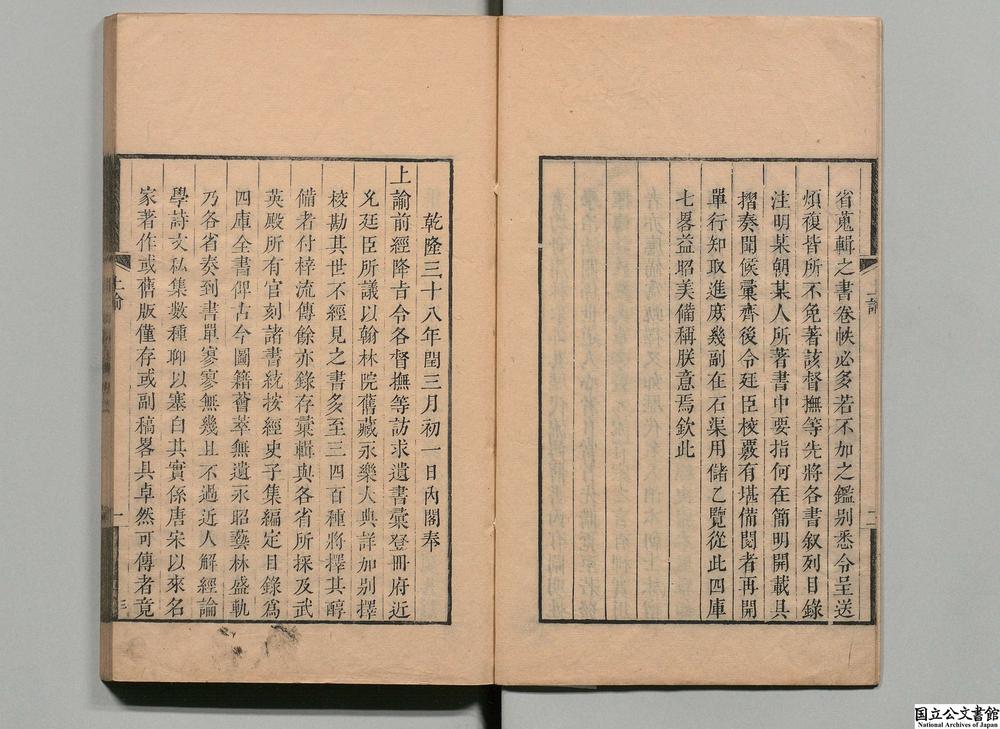 省蒐輯之書卷帙必多若不加之鑑别悉令呈送
煩複皆所不免著該督撫等先將各書叙列目錄
注明某朝某人所著書中要指何在簡明開載具
摺奏聞候彚齊後令廷臣檢覈有堪備閱者再開
單行知取進庶幾副在石渠用儲乙覽從此四庫
七畧益昭美備稱朕意焉欽此
上諭
二
乾隆三十八年閏三月初一日內閣奉
上諭前經降旨令各督撫等訪求遺書彚登冊府近
允廷臣所議以翰林院舊藏永樂大典詳加别擇
校勘其世不經見之書多至三四百種將擇其醇
備者付梓流傳餘亦錄存彚輯與各省所採及武
英殿所有官刻諸書統按經史子集編定目錄爲
四庫全書俾古今圖籍薈萃無遺永昭藝林盛軌
乃各省奏到書單寥寥無幾且不過近人解經論
學詩文私集數種聊以塞白其實係唐宋以來名
家著作或舊版僅存或副稿畧具卓然可傳者竟
上諭
三
国立公文書館
National Archives of Japan